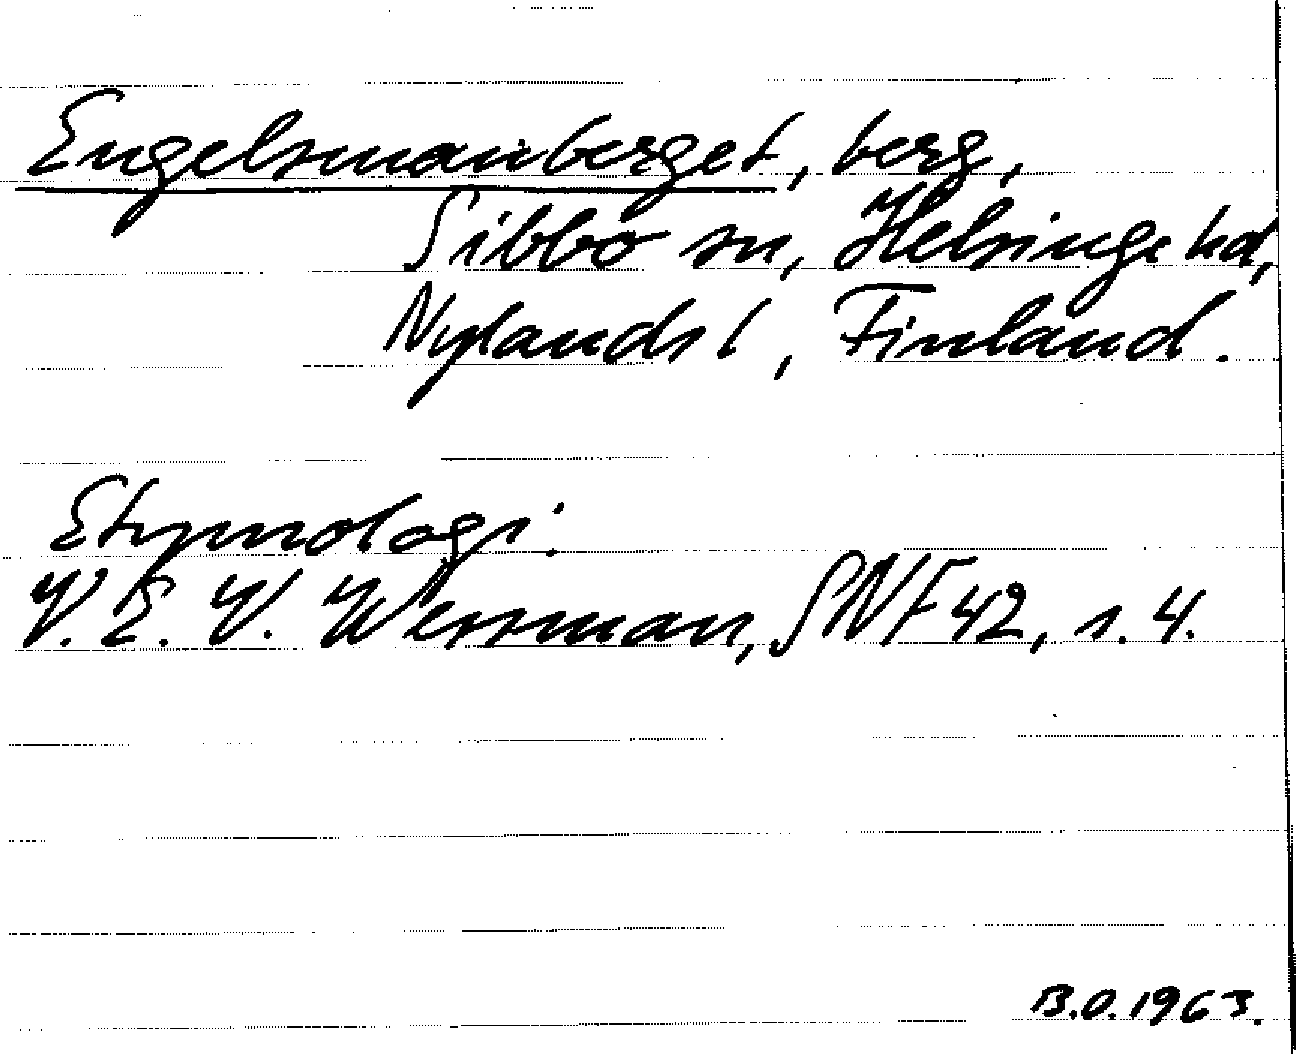 Engelsmanberget, berg,
Sibbo sn, Helsinge hd,
Nylands l, Finland.
Etymologi:
V. E. V. Wessman, SNF 42, s. 4.
B.O. 1963.